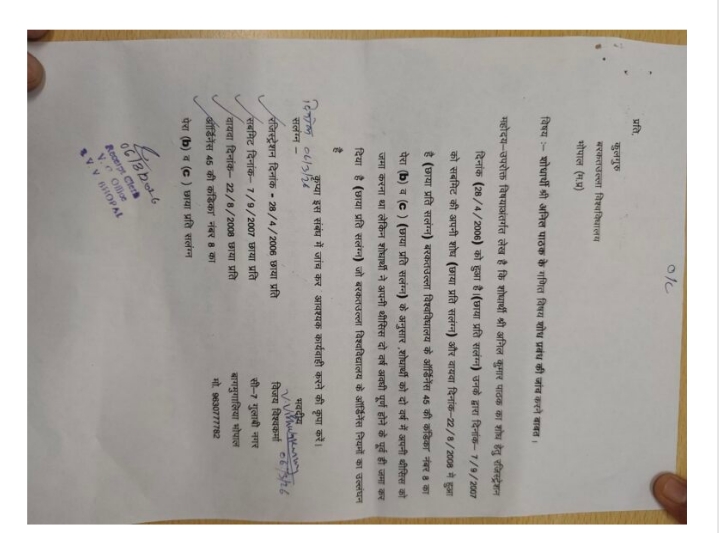 O/C
प्रति,
कुलगुरु
बरकतउल्ला विश्वविद्यालय
भोपाल (म.प्र)
विषय :– शोधार्थी श्री अनिल पाठक के गणित विषय शोध प्रबंध की जांच करने बाबत ।
महोदय–उपरोक्त विषयांतर्गत लेख है कि शोधार्थी श्री अनिल कुमार पाठक का शोध हेतु रजिस्ट्रेशन
दिनांक (28/4/2006) को हुआ है।(छाया प्रति सलंग्न) उनके द्वारा दिनांक– 7/9/2007
को सबमिट की अपनी शोध (छाया प्रति सलंग्न) और वायवा दिनांक–22/8/2008 मे हुआ
है (छाया प्रति सलंग्न) बरकतउल्ला विश्वविद्यालय के ऑर्डिनेंस 45 की कंडिका नंबर 8 का
पेरा (b) व (c) (छाया प्रति सलंग्न) के अनुसार ,शोधार्थी को दो वर्ष में अपनी थीसिस को
जमा करना था लेकिन शोधार्थी ने अपनी थीसिस दो वर्ष अवधी पूर्ण होने के पूर्व ही जमा कर
दिया है (छाया प्रति सलंग्न) जो बरकतउल्ला विश्वविद्यालय के ऑर्डिनेंस नियमों का उल्लंघन
है
कृप्या इस संबंध में जांच कर आवश्यक कार्यवाही करने की कृपा करें।
दिनांक 06/3/26
सलंग्न –
भवदीय
रजिस्ट्रेशन दिनांक - 28/4/2006 छाया प्रति
विजय विश्वकर्मा 06/3/26
सबमिट दिनांक– 7/9/2007 छाया प्रति
सी–7 गुलाबी नगर
वायवा दिनांक– 22/8/2008 छाया प्रति
बागमुगालिया भोपाल
ऑर्डिनेंस 45 की कंडिका नंबर 8 का
मो. 9630777782
पेरा (b) व (c) छाया प्रति सलंग्न
06/3/2026
V. C. Office
BHOPAL